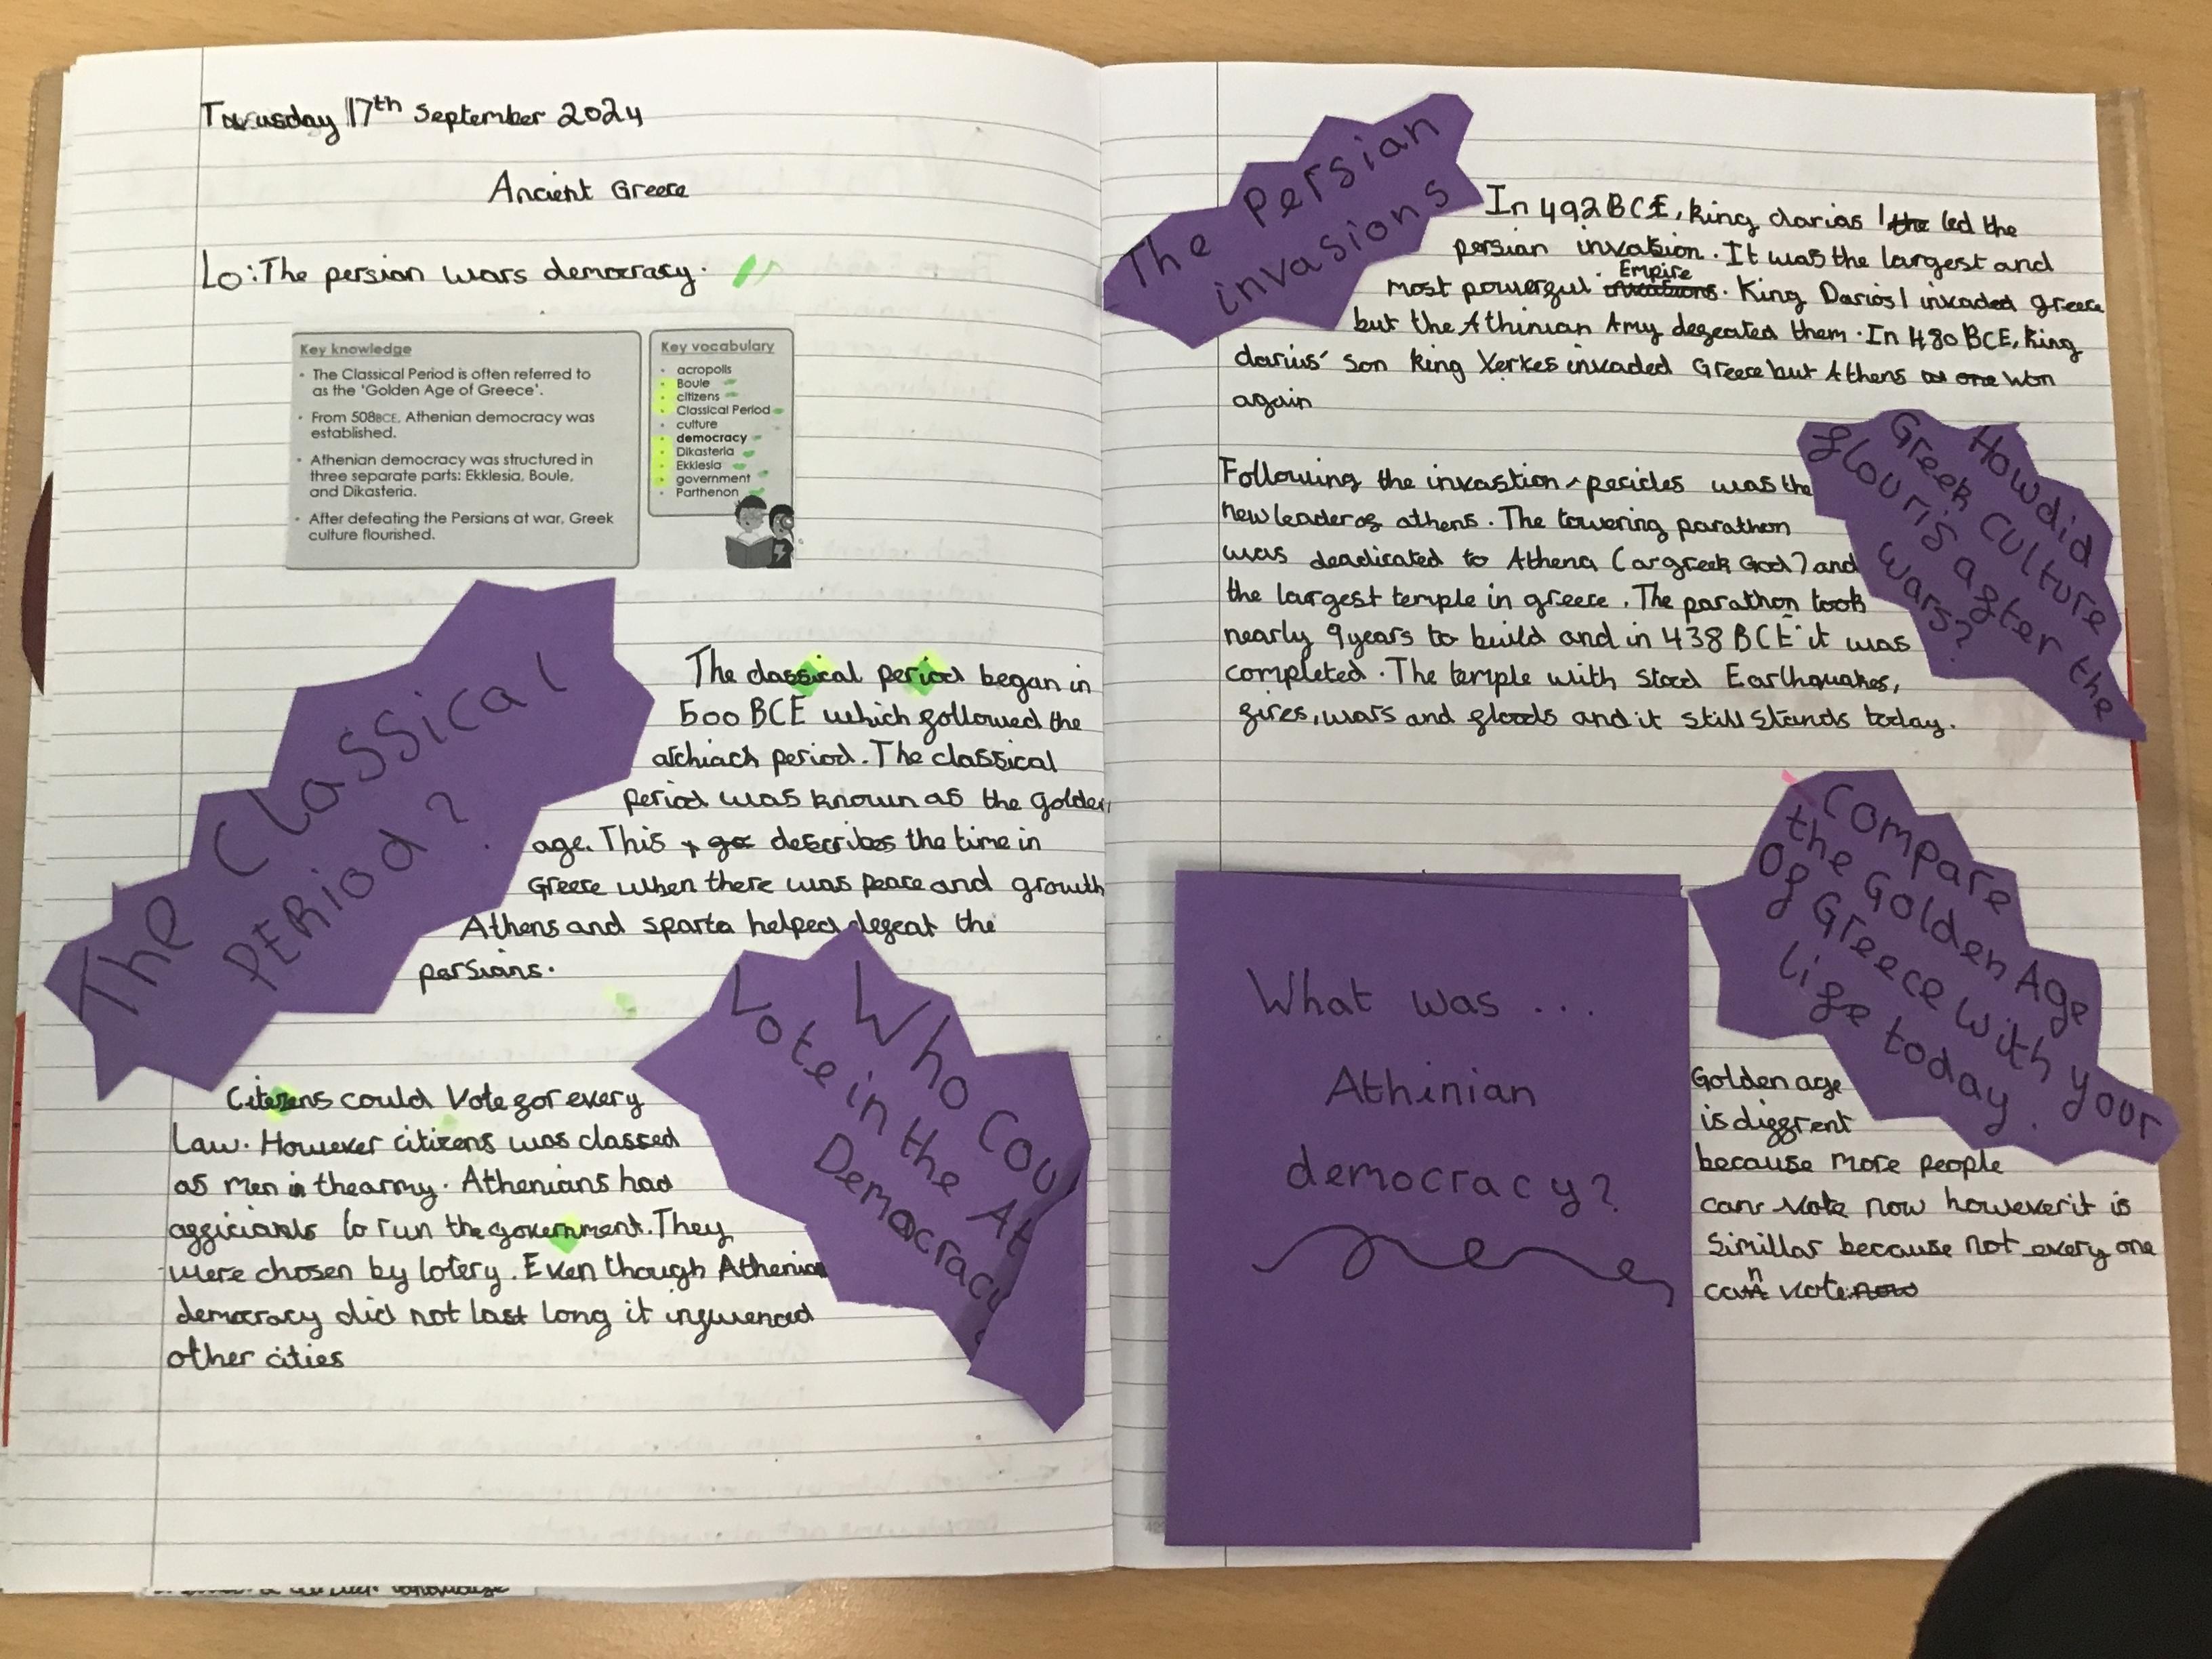 Tuesday 17th September 2024
Ancient Greece
Lo: The persian wars democracy.
Key knowledge
• The Classical Period is often referred to
as the 'Golden Age of Greece'.
• From 508BCE, Athenian democracy was
established.
• Athenian democracy was structured in
three separate parts: Ekklesia, Boule,
and Dikasteria.
• After defeating the Persians at war, Greek
culture flourished.
Key vocabulary
• acropolis
• Boule
• citizens
• Classical Period
• culture
• democracy
• Dikasteria
• Ekklesia
• government
• Parthenon
The Classical
PERiod?
The classical period began in
500 BCE which followed the
archiach period. The classical
period was known as the golden
age. This describes the time in
Greece when there was peace and growth
Athens and sparta helped defeat the
persians.
Who Cou
Vote in the At
Democracy
Citezens could Vote for every
Law. However citizens was classed
as men in the army. Athenians had
officianls to run the government. They
were chosen by lotery. Even though Athenian
democracy did not last long it infwenced
other cities
The Persian
invasions
In 492 BCE, king darias 1 the led the
persian invasion. It was the largest and
most powerful Empire. King Darios 1 invaded greece
but the Athinian Amy defeated them. In 480 BCE, king
darius' son king Xerkes invaded Greece but Athens won
again
How did
Greek Culture
flouris after the
wars?
Following the invastion pericles was the
new leader of athens. The towering parathon
was deadicated to Athena (a greek God) and
the largest temple in greece. The parathon took
nearly 9 years to build and in 438 BCE it was
completed. The temple with stood Earlhquakes,
fires, wars and floods and it still stands today.
Compare
the Golden Age
of Greece with your
life today.
What was ...
Athinian
democracy?
Golden age
is diffrent
because more people
can vote now however it is
Simillar because not every one
can vote now